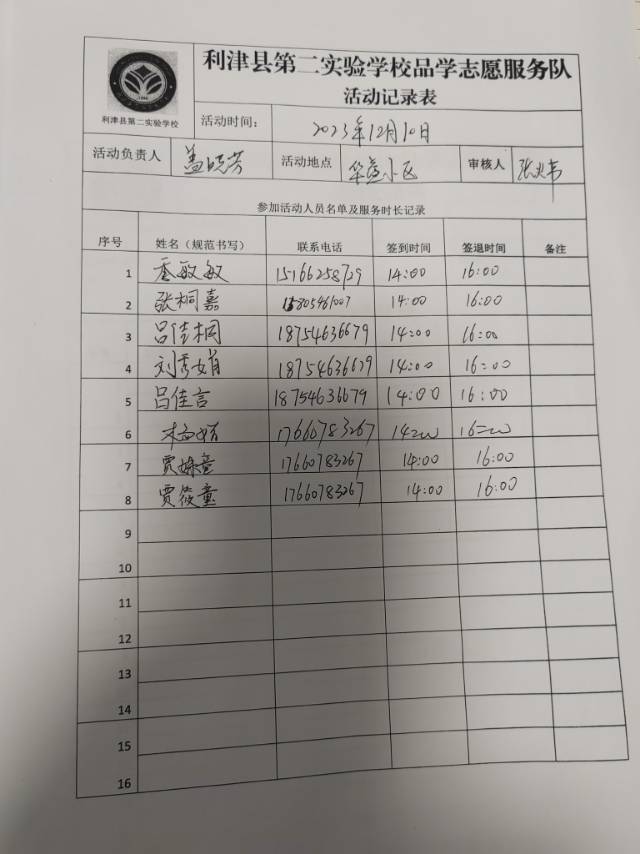 利津县第二实验学校品学志愿服务队
活动记录表
利津县第二实验学校
活动时间： 2023年12月10日
活动负责人 盖晓芳 活动地点 小区 审核人 张
参加活动人员名单及服务时长记录
序号 姓名（规范书写） 联系电话 签到时间 签退时间 备注
1 敏敏 15166258729 14:00 16:00
2 张桐嘉 15805461007 14:00 16:00
3 吕佳桐 18754636679 14:00 16:00
4 刘秀娟 18754636679 14:00 16:00
5 吕佳言 18754636679 14:00 16:00
6 17660783267 14:00 16:00
7 贾姝童 17660783267 14:00 16:00
8 贾筱童 17660783267 14:00 16:00
9
10
11
12
13
14
15
16